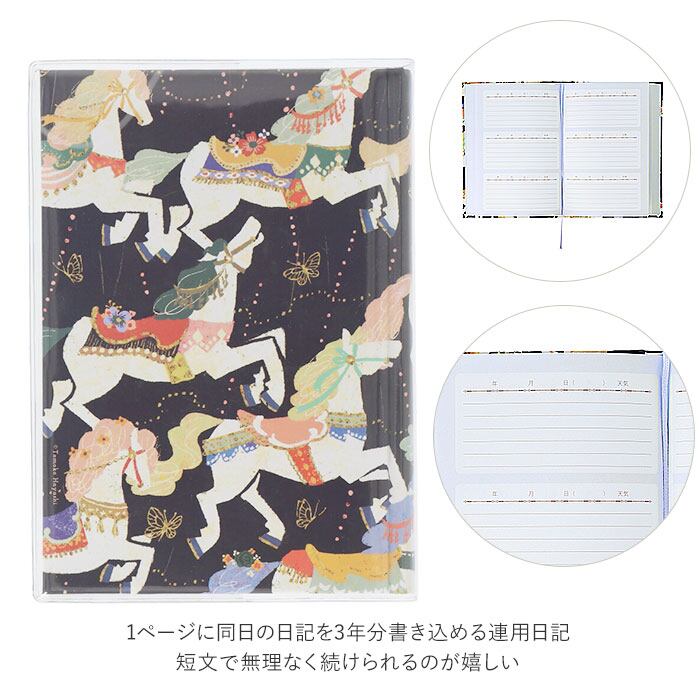 年 月 日( ) 天気
年 月 日( ) 天気
©Tamako Hayashi
1ページに同日の日記を3年分書き込める連用日記
短文で無理なく続けられるのが嬉しい